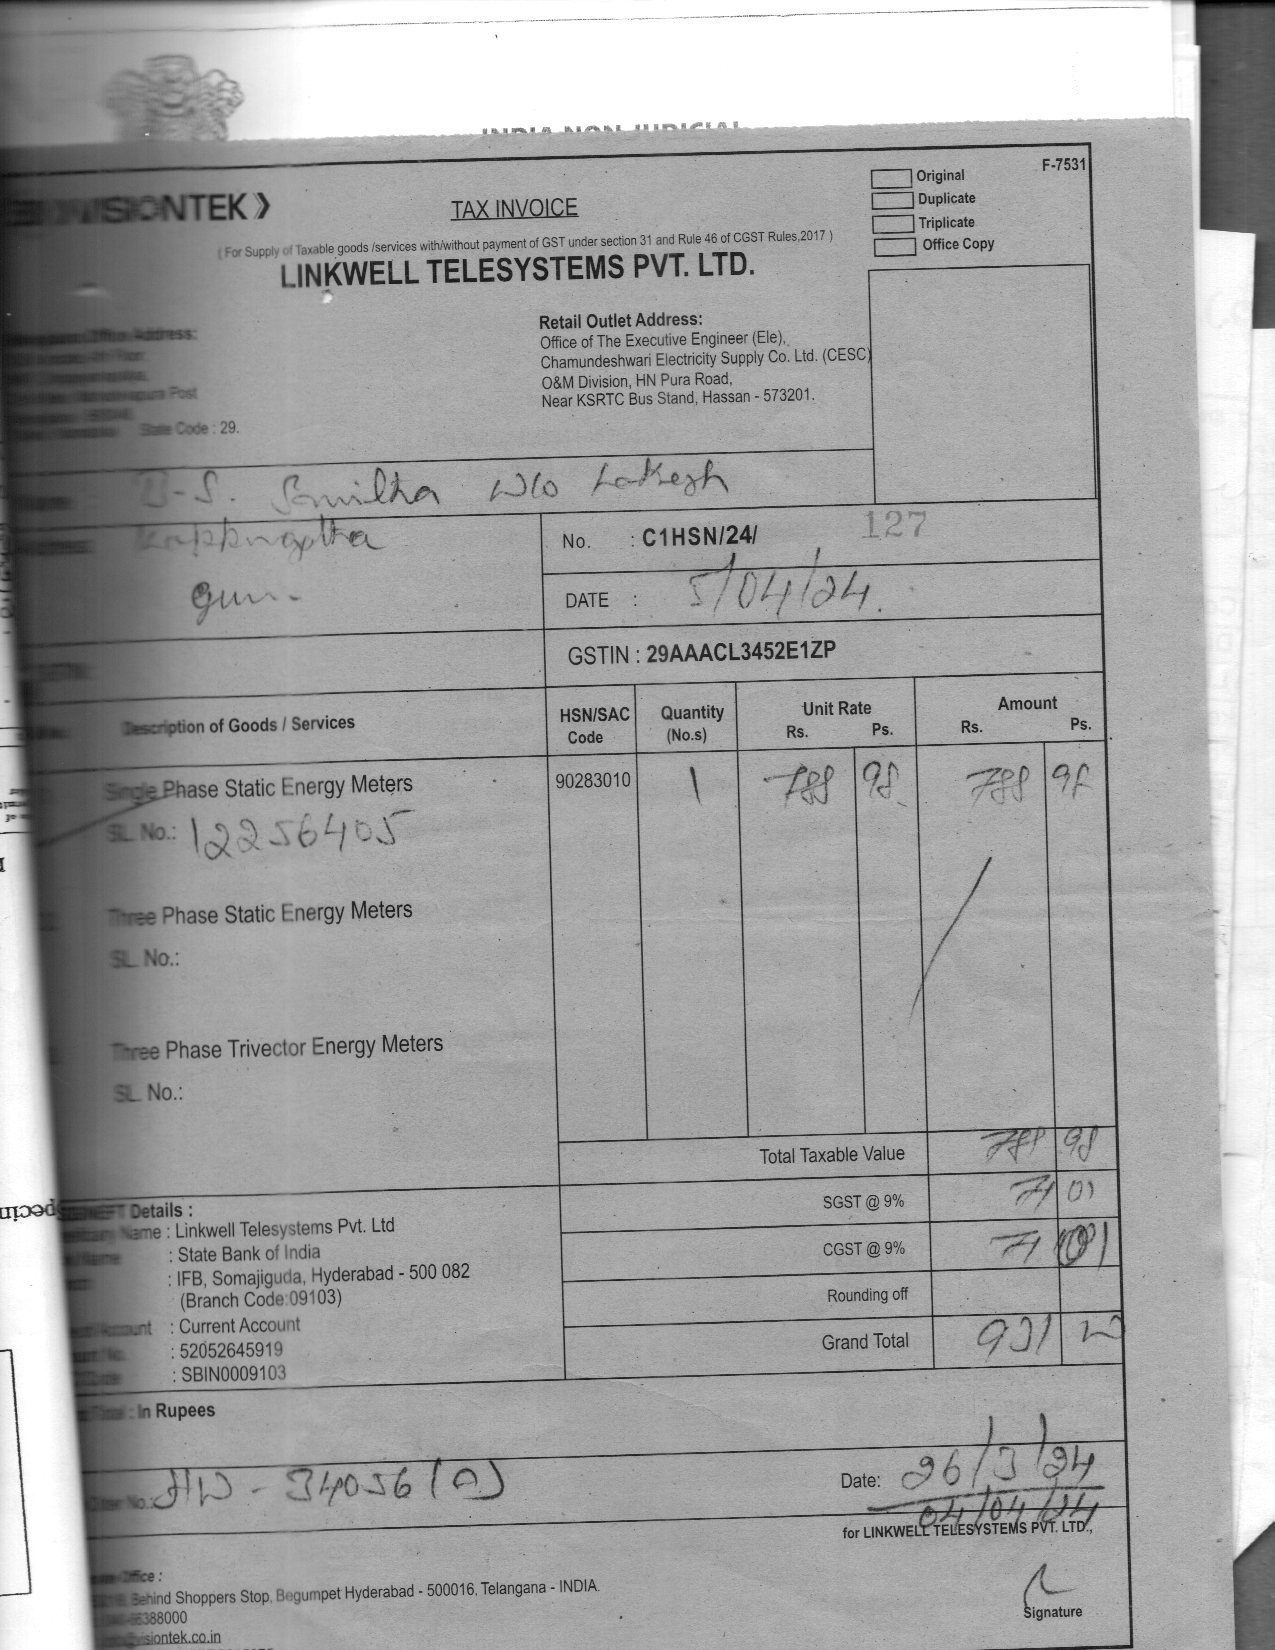 INDIA NON JUDICIAL
F-7531
VISIONTEK
TAX INVOICE
Original
Duplicate
Triplicate
Office Copy
( For Supply of Taxable goods /services with/without payment of GST under section 31 and Rule 46 of CGST Rules,2017 )
LINKWELL TELESYSTEMS PVT. LTD.
Office Address:
Post
State Code : 29.
Retail Outlet Address:
Office of The Executive Engineer (Ele),
Chamundeshwari Electricity Supply Co. Ltd. (CESC)
O&M Division, HN Pura Road,
Near KSRTC Bus Stand, Hassan - 573201.
W/o Lokesh
No. : C1HSN/24/ 127
DATE : 5/04/24.
GSTIN : 29AAACL3452E1ZP
Description of Goods / Services HSN/SAC Code Quantity (No.s) Unit Rate Rs. Ps. Amount Rs. Ps.
Single Phase Static Energy Meters 90283010 1 788 98 788 98
SL. No.: 12256405
Three Phase Static Energy Meters
SL. No.:
Three Phase Trivector Energy Meters
SL. No.:
Total Taxable Value 788 98
SGST @ 9% 71 01
CGST @ 9% 71 01
Rounding off
Grand Total 931 00
Details :
Name : Linkwell Telesystems Pvt. Ltd
Name : State Bank of India
: IFB, Somajiguda, Hyderabad - 500 082
(Branch Code:09103)
Account : Current Account
: 52052645919
: SBIN0009103
: In Rupees
No.: MW - 34056 (A)
Date: 26/3/24
04/04/24
for LINKWELL TELESYSTEMS PVT. LTD.,
Office :
Behind Shoppers Stop, Begumpet Hyderabad - 500016, Telangana - INDIA.
388000
visiontek.co.in
Signature